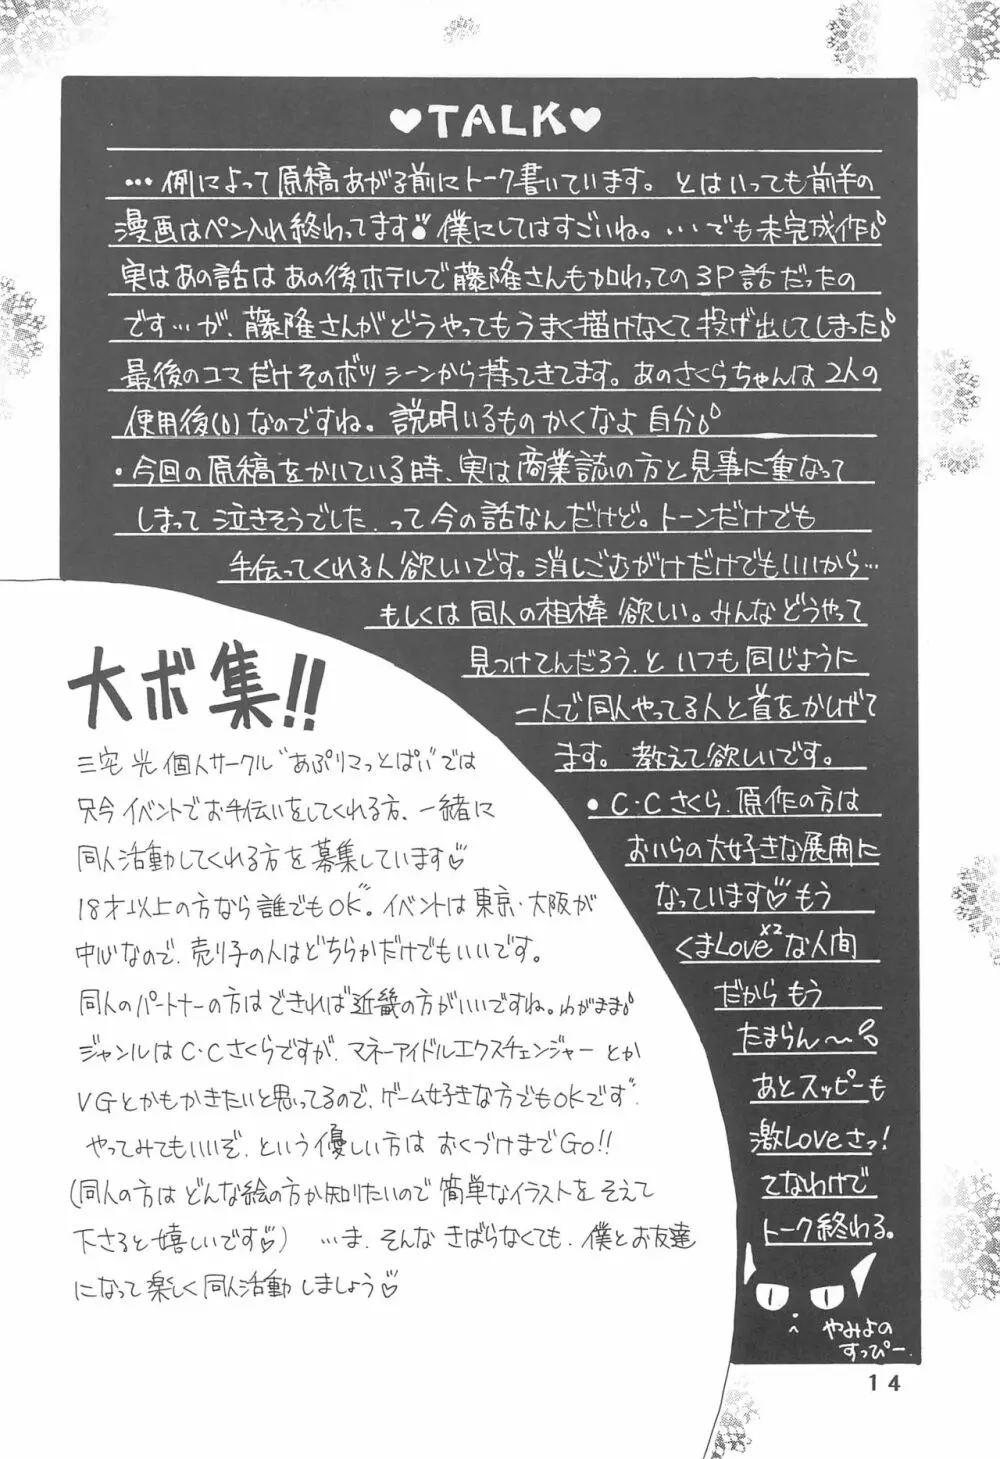 ♥TALK♥
…例によって原稿あがる前にトーク書いています。とはいっても前半の
漫画はペン入れ終わってます 僕にしてはすごいね。…でも未完成作
・今回の原稿をかいている時、実は商業誌の方と見事に重なって
しまって泣きそうでした、って今の話なんだけど。トーンだけでも
手伝ってくれる人欲しいです。消しごむがけだけでもいいから…
もしくは同人の相棒欲しい。みんなどうやって
見つけてんだろう、といつも同じように
一人で同人やってる人と首をかしげて
ます。教えて欲しいです。
・C・Cさくら、原作の方は
おいらの大好きな展開に
なっています♡もう
くまLove×2な人間
だからもう
たまらん〜
あとスッピーも
激Loveさっ!
てなわけで
トーク終わる。
やみよの
すっぴー.
大ボ集!!
三宅 光個人サークル"あぷりこっとぱい"では
只今イベントでお手伝いをしてくれる方、一緒に
同人活動してくれる方を募集しています♡
18才以上の方なら誰でもOK。イベントは東京・大阪が
中心なので、売り子の人はどちらかだけでもいいです。
同人のパートナーの方はできれば近畿の方がいいですね。わがまま
ジャンルはC・Cさくらですが、マネーアイドルエクスチェンジャーとか
VGとかもかきたいと思ってるので、ゲーム好きな方でもOKです.
やってみてもいいぞ、という優しい方はおくづけまでGo!!
(同人の方はどんな絵の方か知りたいので簡単なイラストをそえて
下さると嬉しいです♡) …ま、そんなきばらなくても、僕とお友達
になって楽しく同人活動しましょう♡
14